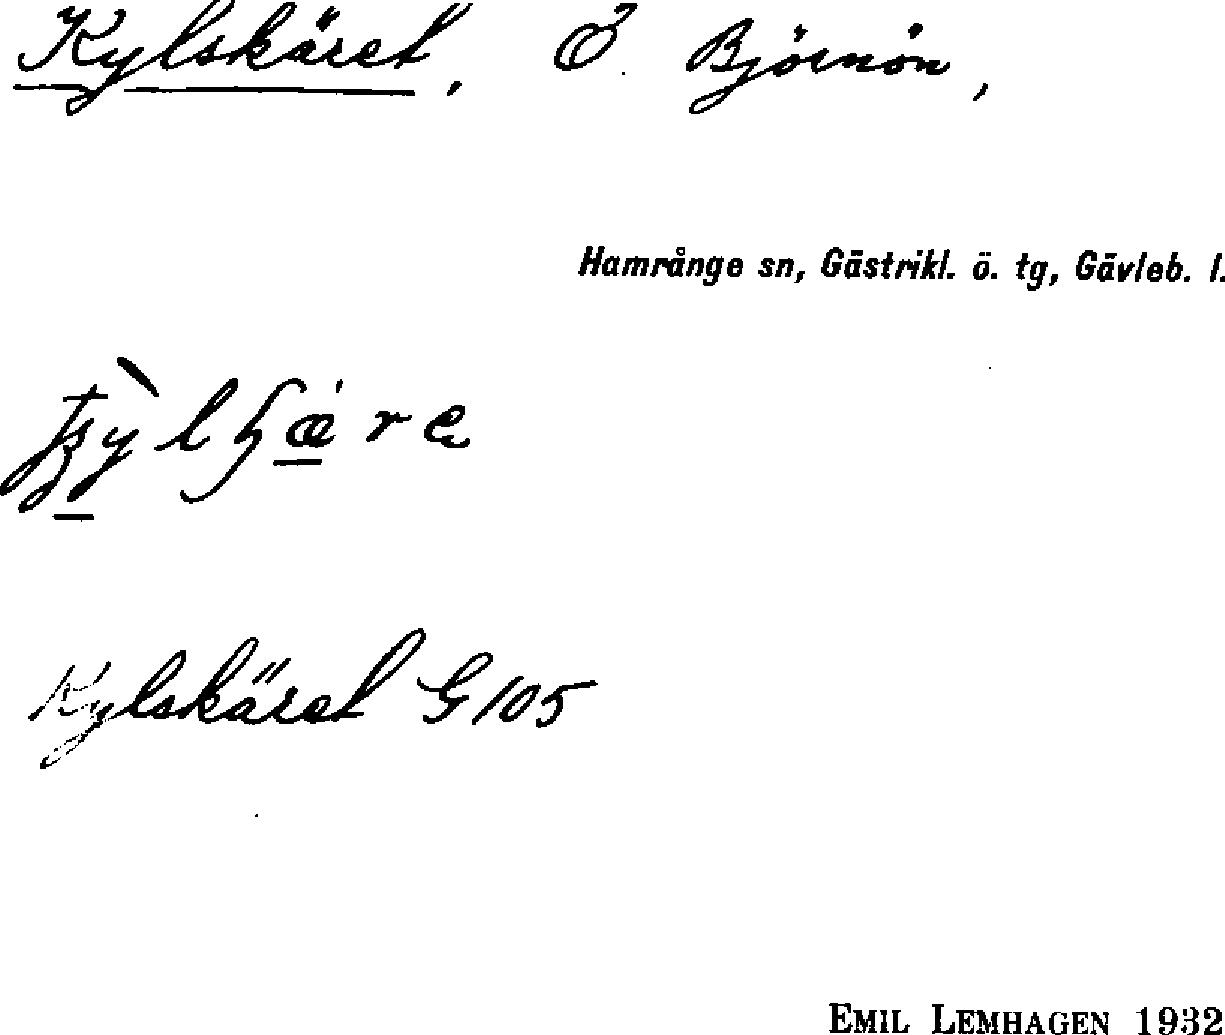 Kylskäret, Ö. Björnön,
Hamrånge sn, Gästrikl. ö. tg, Gävleb. l.
Kylskäret G 105
EMIL LEMHAGEN 1932